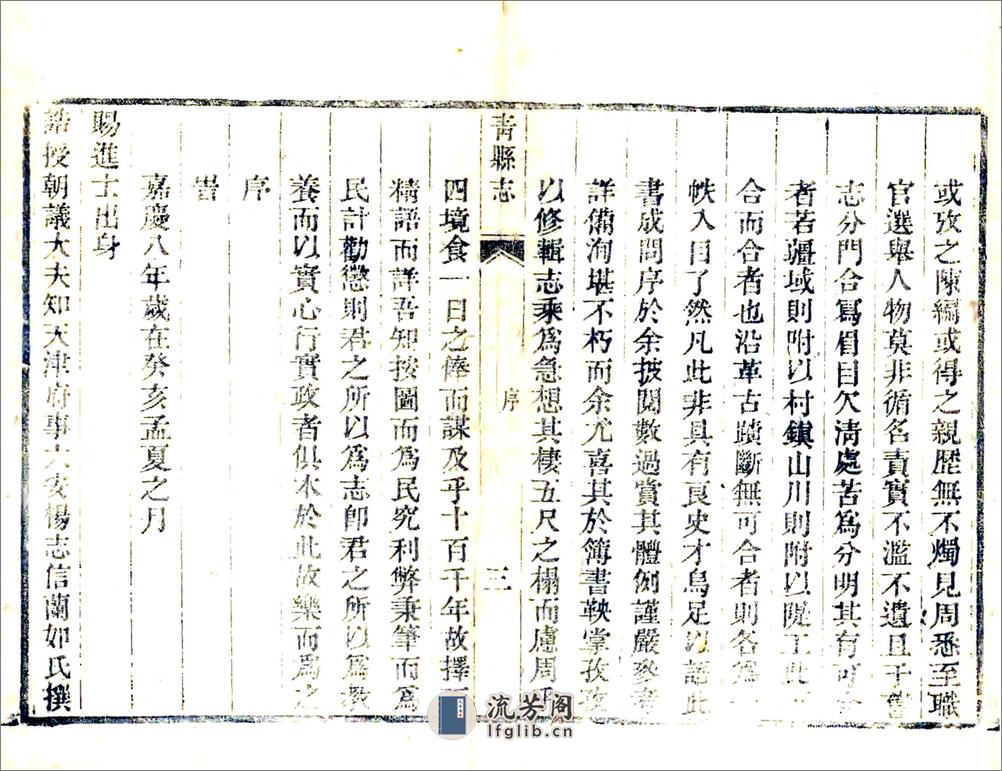 或攷之陳編或得之親歴無不燭見周悉至職
官選舉人物莫非循名責實不濫不遺且于舊
志分門合寫眉目欠清處苦為分明其有可合
者若疆域則附以村鎮山川則附以隄工此
合而合者也沿革古蹟斷無可合者則各為
帙入目了然凡此非具有良史才烏足以語此
書成問序於余披閱數過賞其體例謹嚴叅考
詳備洵堪不朽而余尤喜其於簿書鞅掌孜孜
以修輯志乘為急想其棲五尺之榻而慮周乎
青縣志
序
三
四境食一日之俸而謀及乎十百千年故擇
精語而詳吾知按圖而為民究利弊秉筆而為
民計勸懲則君之所以為志卽君之所以為教
養而以實心行實政者俱本於此故樂而為之
序
旹
嘉慶八年歲在癸亥孟夏之月
賜進士出身
誥授朝議大夫知天津府事六安楊志信蘭如氏撰
流芳阁
lfglib.cn